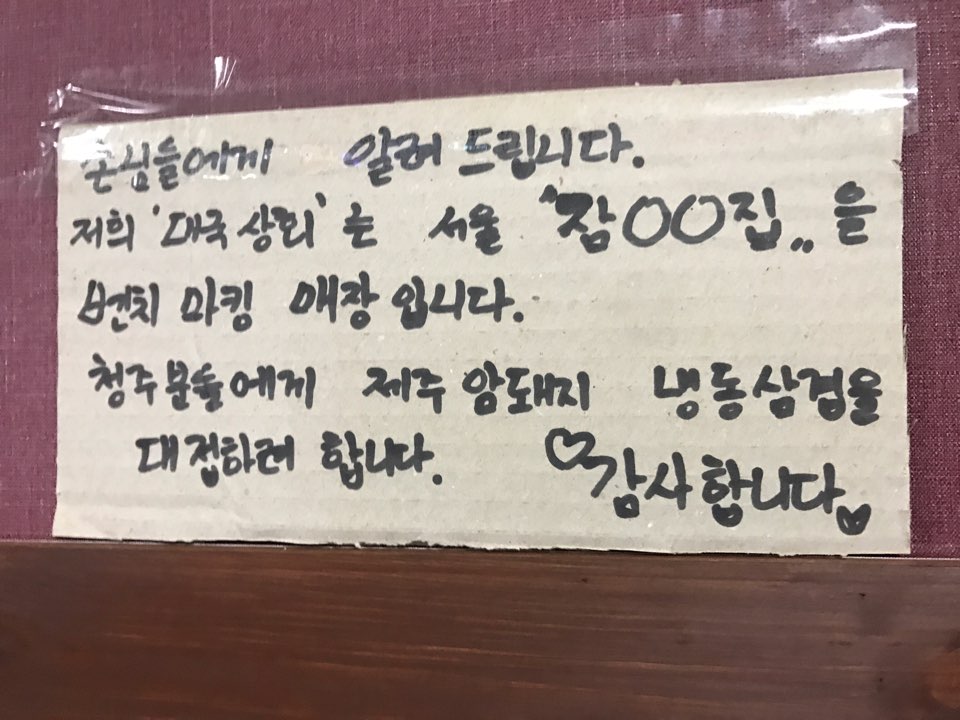 손님들에게 알려 드립니다.
저희 '대국상회'는 서울 "잠OO집"을
벤치 마킹 매장 입니다.
청주분들에게 제주 암돼지 냉동삼겹을
대접하려 합니다. ♡감사합니다♡